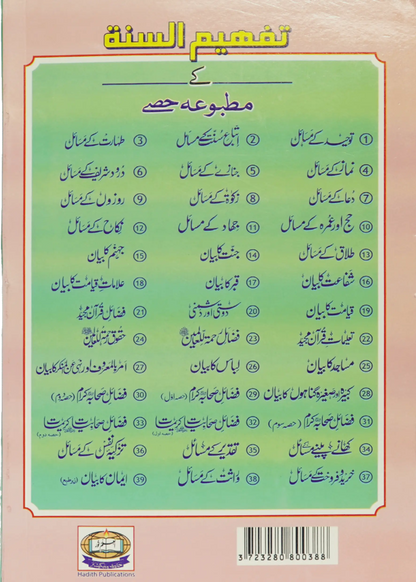 تفہیم السنۃ
کے
مطبوعہ حصے
① توحید کے مسائل ② اتباع سنت کے مسائل ③ طہارت کے مسائل
④ نماز کے مسائل ⑤ جنازے کے مسائل ⑥ درود شریف کے مسائل
⑦ دعا کے مسائل ⑧ زکوٰۃ کے مسائل ⑨ روزوں کے مسائل
⑩ حج اور عمرہ کے مسائل ⑪ جہاد کے مسائل ⑫ نکاح کے مسائل
⑬ طلاق کے مسائل ⑭ جنت کا بیان ⑮ جہنم کا بیان
⑯ شفاعت کا بیان ⑰ قبر کا بیان ⑱ علامات قیامت کا بیان
⑲ قیامت کا بیان ⑳ دوستی اور دشمنی ㉑ فضائل قرآن مجید
㉒ تعلیمات قرآن مجید ㉓ فضائل رحمۃ للعالمین ㉔ حقوق رحمۃ للعالمین
㉕ مساجد کا بیان ㉖ لباس کا بیان ㉗ امر بالمعروف اور نہی عن المنکر کا بیان
㉘ کبیرہ اور صغیرہ گناہوں کا بیان ㉙ فضائل صحابہ کرام (حصہ اول) ㉚ فضائل صحابہ کرام (حصہ دوم)
㉛ فضائل صحابہ کرام (حصہ سوم) ㉜ فضائل صحابیات (حصہ اول) ㉝ فضائل صحابیات (حصہ دوم)
㉞ کھانے پینے کے مسائل ㉟ تقدیر کے مسائل ㊱ تزکیہ نفس کے مسائل
㊲ خرید و فروخت کے مسائل ㊳ وراثت کے مسائل ㊴ ایمان کا بیان (زیر طبع)
Hadith Publications
3 723280 800388